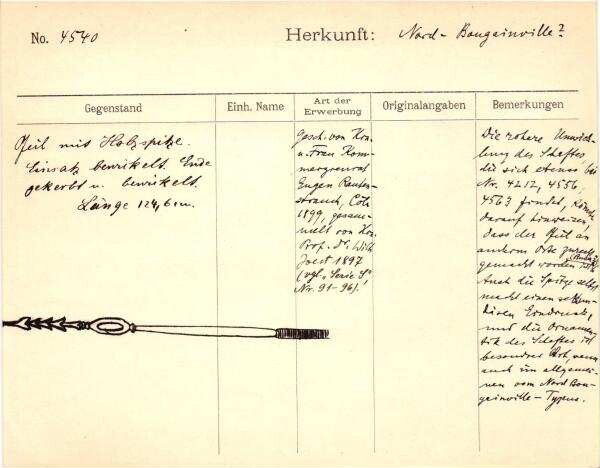 No. 4540
Herkunft: Nord-Bougainville?
Gegenstand
Einh. Name
Art der Erwerbung
Originalangaben
Bemerkungen
Pfeil mit Holzspitze.
Einsatz bewickelt. Ende
gekerbt u. bewickelt.
Länge 124,6 cm.
Gesch. von Hrn.
u. Frau Kom-
merzienrat
Eugen Rauten-
strauch, Cöln
1899, gesam-
melt von Hrn.
Prof. Dr. Wilh.
Joest 1897
(vgl. "Serie S"
Nr. 91-96)!
Die rohere Umwick-
lung des Schaftes,
die sich ebenso bei
Nr. 4212, 4556,
4563 findet, könnte
darauf hinweisen,
dass der Pfeil an
anderm Orte zurecht
gemacht worden ist
(Buka?)
Auch die Spitze selbst
macht einen
Eindruck,
und die Ornamen-
tik des Schaftes ist
besondrer Art, wenn
auch im allgemei-
nen vom Nord Bou-
gainville-Typus.